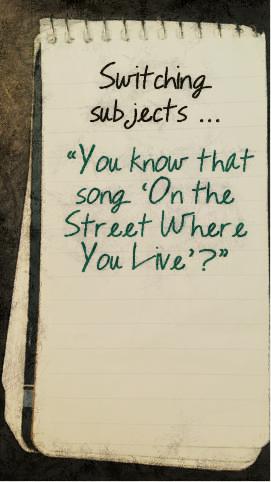 Switching
subjects ...
“You know that
song ‘On the
Street Where
You Live’?”